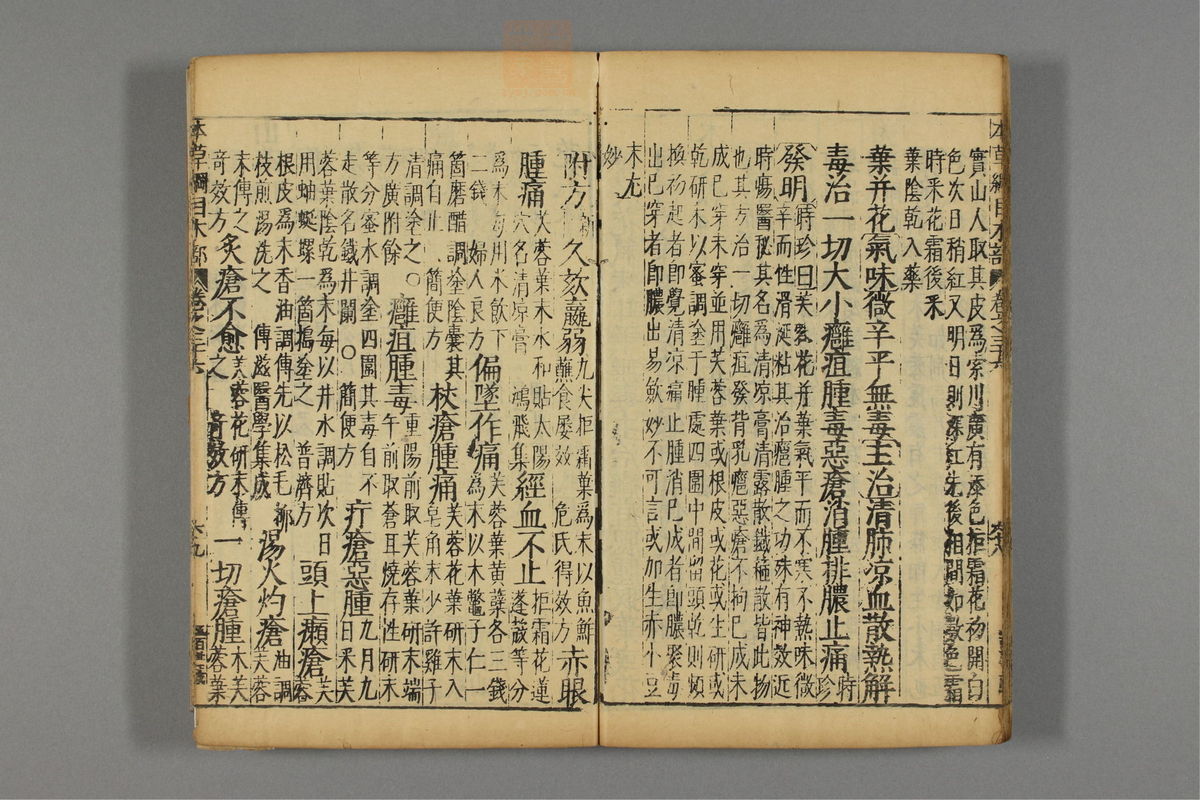 實山人取其皮爲索川廣有添色拒霜花初開白
色次日稍紅又明日則深紅先後相間如數色霜
時采花霜後采
葉陰乾入藥
葉并花氣味微辛平無毒主治清肺凉血散熱解
毒治一切大小癰疽腫毒惡瘡消腫排膿止痛時珍
發明時珍曰芙蓉花并葉氣平而不寒不熱味微
辛而性滑涎粘其治癰腫之功殊有神效近
時瘍醫秘其名爲清凉膏清露散鐵箍散皆此物
也其方治一切癰疽發背乳癰惡瘡不拘已成未
成已穿未穿並用芙蓉葉或根皮或花或生研或
乾研末以蜜調塗于腫處四圍中間留頭乾則頻
換初起者即覺清凉痛止腫消已成者即膿聚毒
出已穿者即膿出易斂妙不可言或加生赤小豆
末尤
妙
附方新久欬羸弱九尖拒霜葉爲末以魚鮓蘸食屢效 危氏得效方赤眼
腫痛芙蓉葉末水和貼太陽穴名清凉膏 鴻飛集經血不止拒霜花蓮蓬殼等分
爲末每用米飲下二錢 婦人良方偏墜作痛芙蓉葉黃蘗各三錢爲末以木鱉子仁一
箇磨醋調塗陰囊其痛自止 簡便方杖瘡腫痛芙蓉花葉研末入皂角末少許雞子
清調塗之○方廣附餘癰疽腫毒重陽前取芙蓉葉研末端午前取蒼耳燒存性研末
等分蜜水調塗四圍其毒自不走散名鐵井闌○簡便方疔瘡惡腫九月九日采芙
蓉葉陰乾爲末每以井水調貼次日用蚰蜒螺一箇搗塗之 普濟方頭上癩瘡芙蓉
根皮爲末香油調傅先以松毛柳枝煎湯洗之 傅滋醫學集成湯火灼瘡油調芙蓉
末傅之奇效方灸瘡不愈芙蓉花研末傅之 奇效方一切瘡腫木芙蓉葉
本草綱目木部 卷之三十六